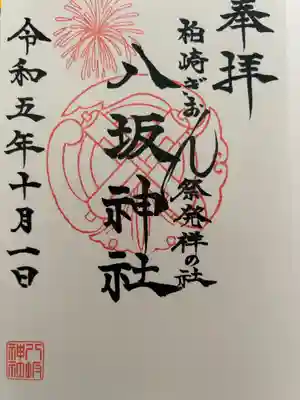 奉拝
柏崎ぎおん祭発祥の社
八坂神社
令和五年十月一日
八坂神社